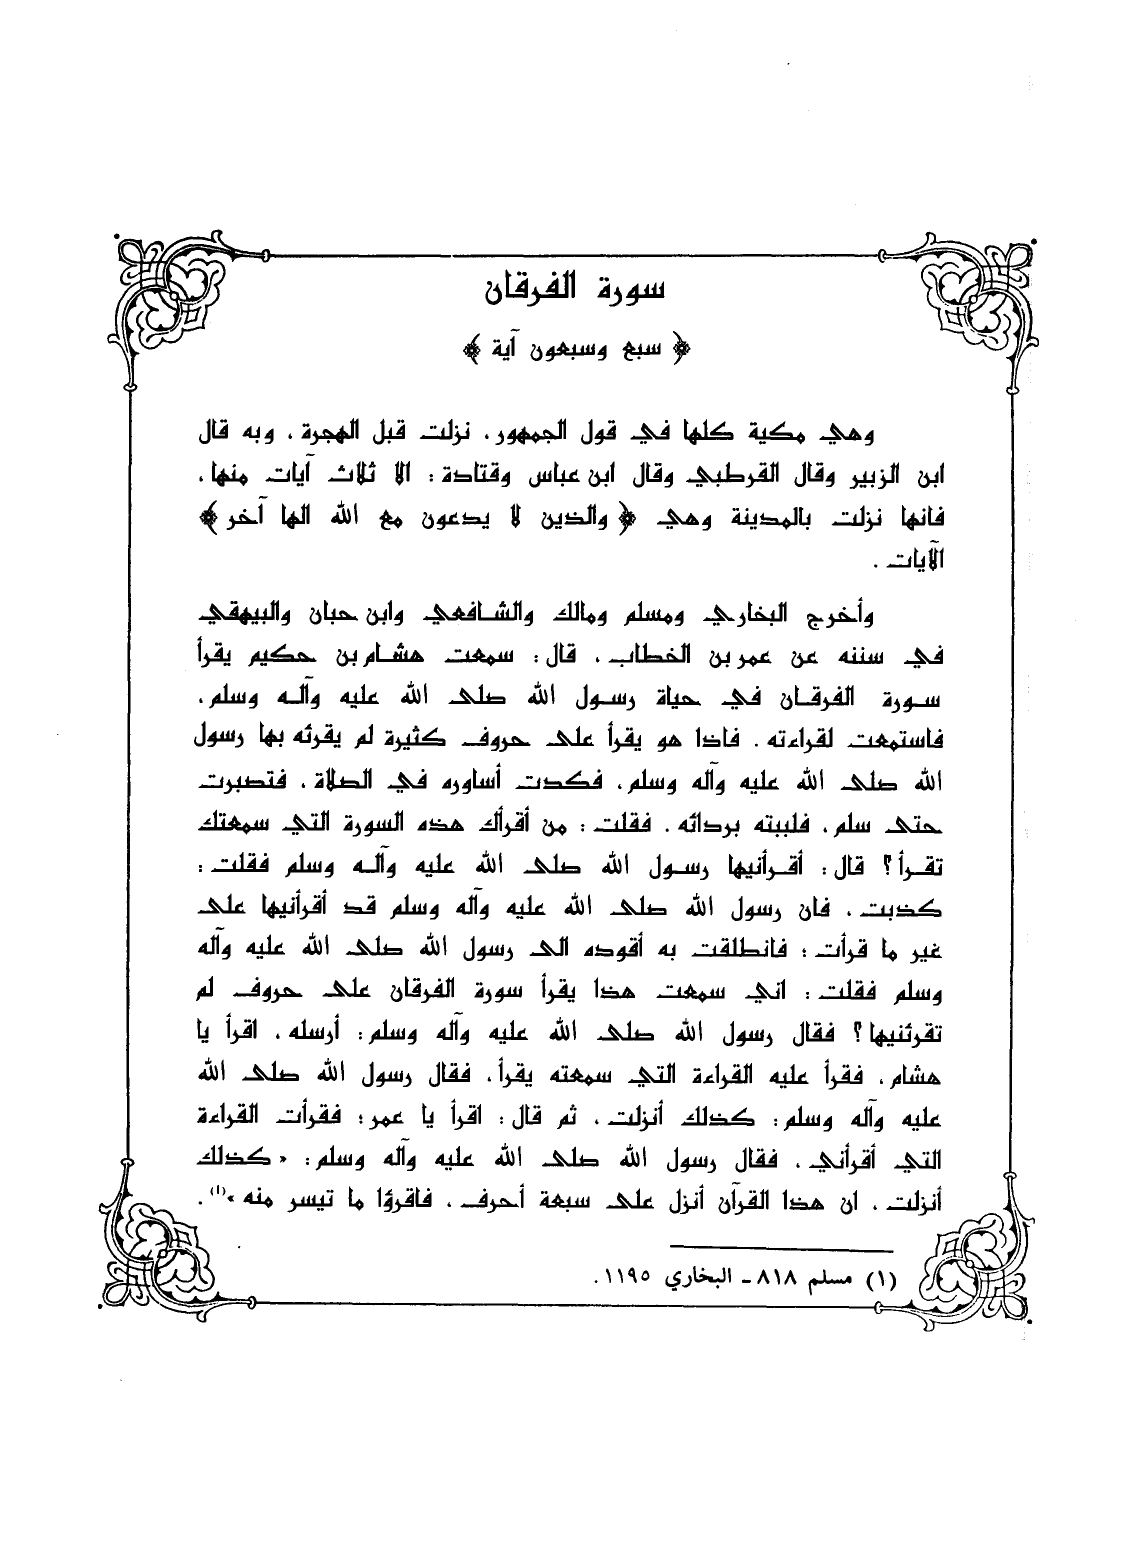 سورة الفرقان
﴿ سبع وسبعون آية ﴾
وهي مكية كلها في قول الجمهور، نزلت قبل الهجرة، وبه قال
ابن الزبير وقال القرطبي وقال ابن عباس وقتادة : الا ثلاث آيات منها،
فانها نزلت بالمدينة وهي ﴿ والذين لا يدعون مع الله الها آخر ﴾
الآيات .
وأخرج البخاري ومسلم ومالك والشافعي وابن حبان والبيهقي
في سننه عن عمر بن الخطاب، قال: سمعت هشام بن حكيم يقرأ
سورة الفرقان في حياة رسول الله صلى الله عليه وآله وسلم،
فاستمعت لقراءته. فاذا هو يقرأ على حروف كثيرة لم يقرئه بها رسول
الله صلى الله عليه وآله وسلم، فكدت أساوره في الصلاة، فتصبرت
حتى سلم، فلببته بردائه. فقلت: من أقرأك هذه السورة التي سمعتك
تقرأ؟ قال: أقرأنيها رسول الله صلى الله عليه وآله وسلم فقلت:
كذبت، فان رسول الله صلى الله عليه وآله وسلم قد أقرأنيها على
غير ما قرأت؛ فانطلقت به أقوده الى رسول الله صلى الله عليه وآله
وسلم فقلت: اني سمعت هذا يقرأ سورة الفرقان على حروف لم
تقرئنيها؟ فقال رسول الله صلى الله عليه وآله وسلم: أرسله، اقرأ يا
هشام، فقرأ عليه القراءة التي سمعته يقرأ، فقال رسول الله صلى الله
عليه وآله وسلم: كذلك أنزلت، ثم قال: اقرأ يا عمر؛ فقرأت القراءة
التي أقرأني، فقال رسول الله صلى الله عليه وآله وسلم: «كذلك
أنزلت، ان هذا القرآن أنزل على سبعة أحرف، فاقرؤا ما تيسر منه»(١).
(١) مسلم ٨١٨ - البخاري ١١٩٥.